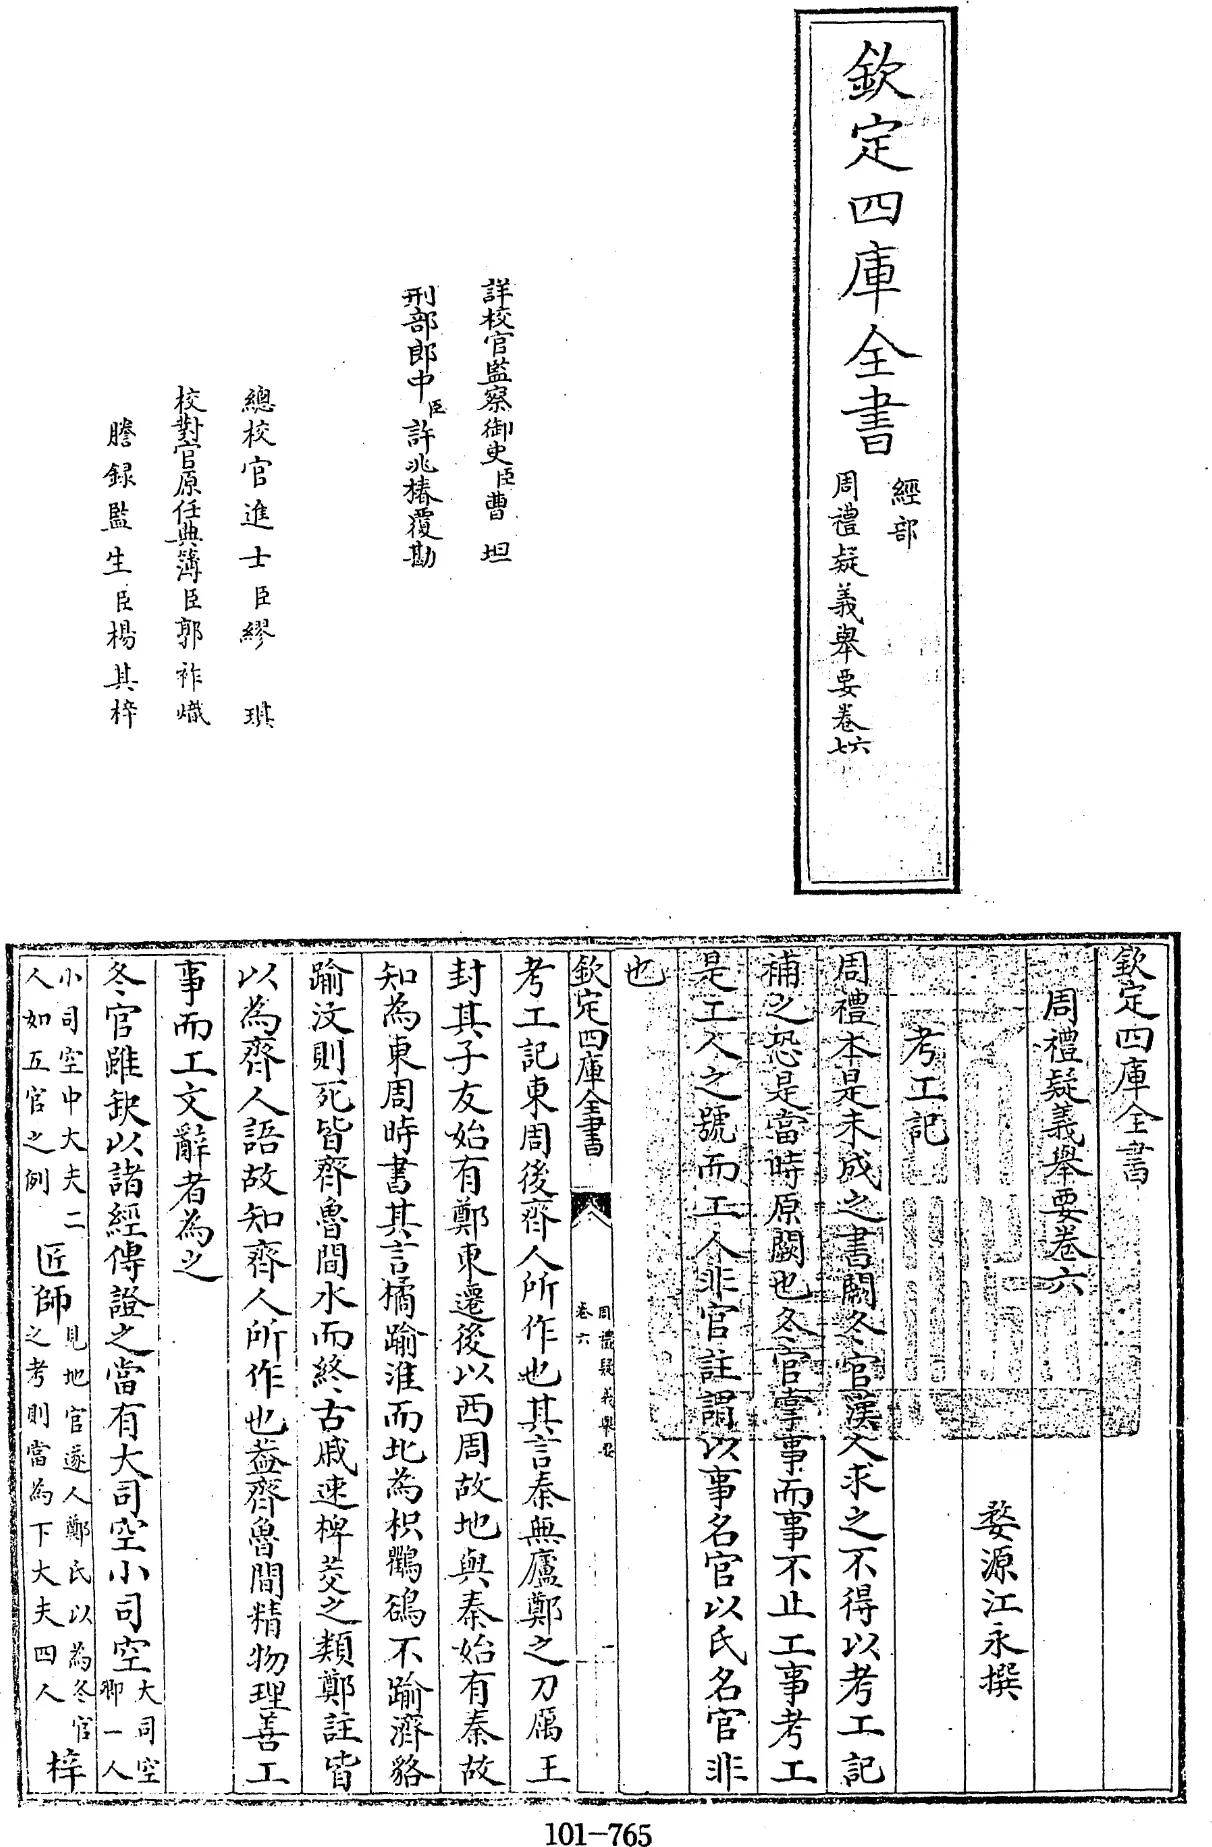 欽定四庫全書
經部
周禮疑義舉要卷六七
詳校官監察御史臣曹坦
刑部郎中臣許兆椿覆勘
總校官進士臣繆琪
校對官原任典簿臣郭祚熾
謄録監生臣楊其梓
欽定四庫全書
周禮疑義舉要卷六
婺源江永撰
考工記
周禮本是未成之書闕冬官漢人求之不得以考工記
補之恐是當時原闕也冬官掌事而事不止工事考工
是工人之號而工人非官註謂以事名官以氏名官非
也
欽定四庫全書
周禮疑義舉要
卷六
一
考工記東周後齊人所作也其言秦無廬鄭之刀厲王
封其子友始有鄭東遷後以西周故地與秦始有秦故
知為東周時書其言橘踰淮而北為枳鸜鵒不踰濟貉
踰汶則死皆齊魯間水而終古戚速椑茭之類鄭註皆
以為齊人語故知齊人所作也葢齊魯間精物理善工
事而工文辭者為之
冬官雖缺以諸經傳證之當有大司空小司空大司空卿一人
小司空中大夫二人如五官之例匠師見地官遂人鄭氏以為冬官之考則當為下大夫四人梓
101-765